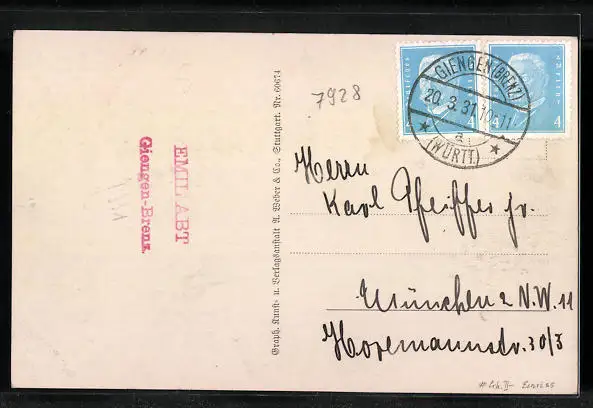 7928
GIENGEN (BRENZ)
20.3.31.10-11
a
(WÜRTT.)
4 4
EMIL ABT
Giengen-Brenz.
Graph. Kunst- u. Verlagsanstalt A. Weber & Co., Stuttgart. Nr. 60674
Herrn
Karl Pfeiffer jr.
München 2 N.W. 11
Horemannstr. 30/3